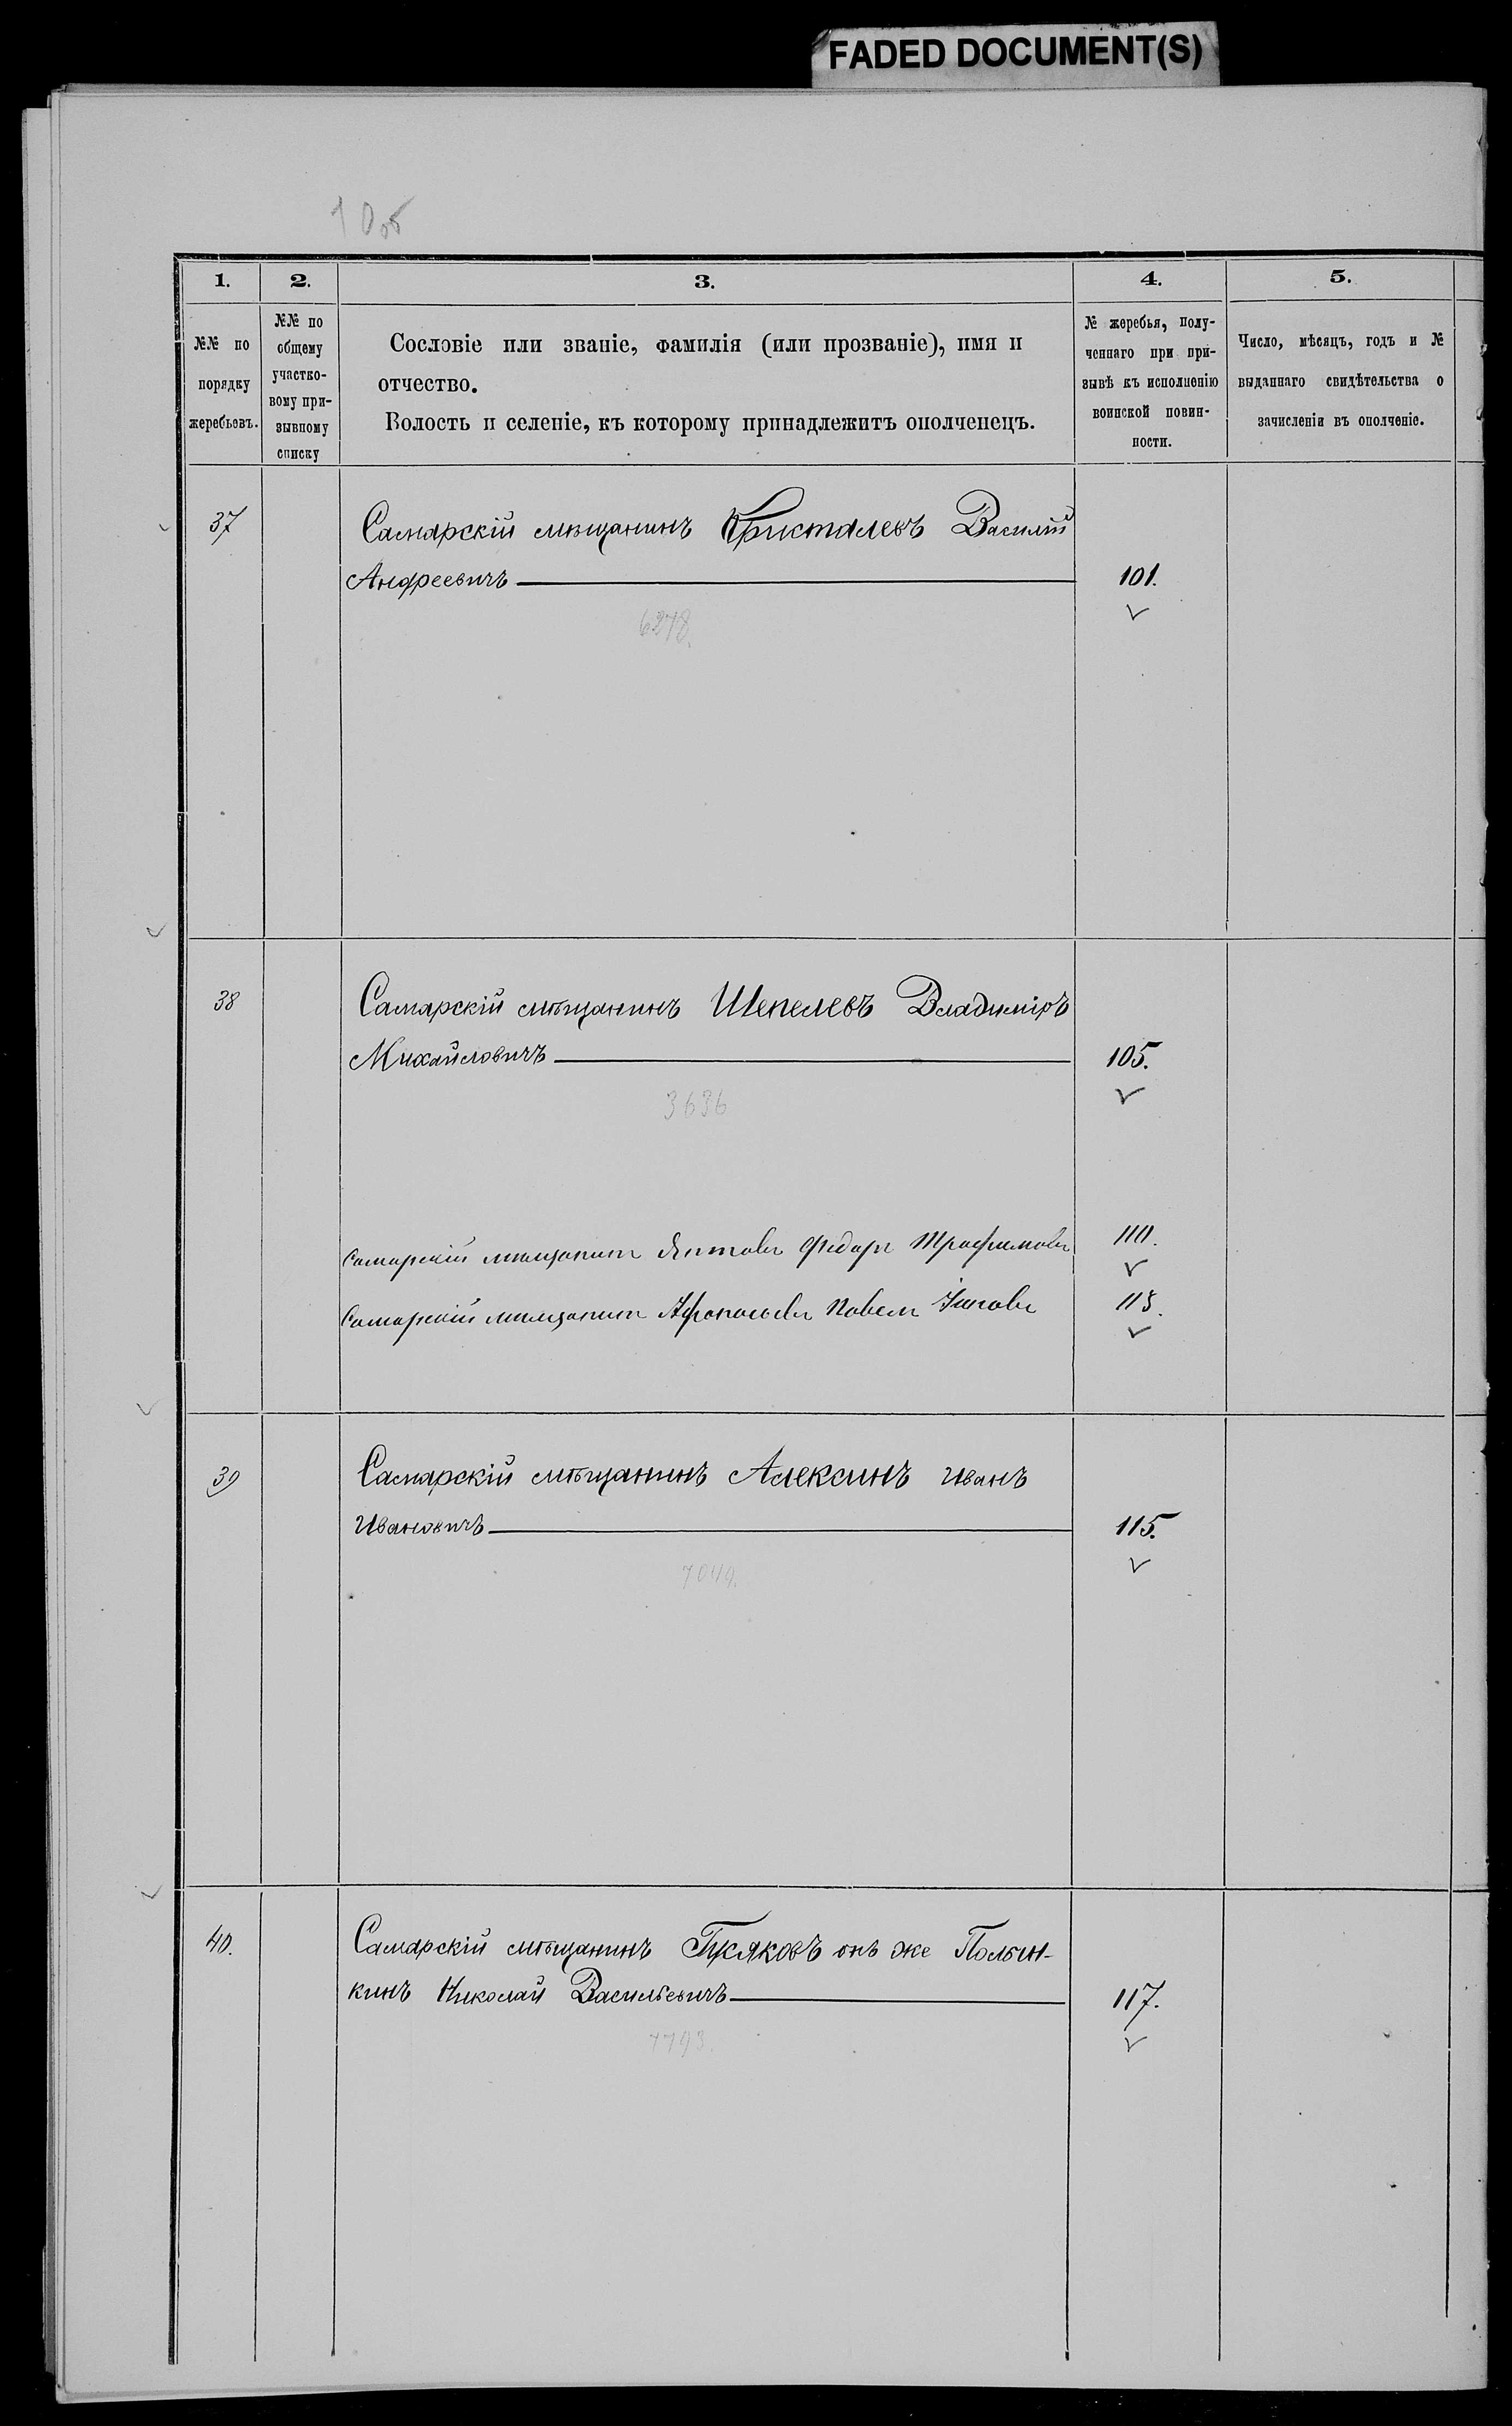 FADED DOCUMENT(S)
10об
1.
2.
3.
4.
5.
№№ по
порядку
жеребьевъ.
№№ по
общему
участко-
вому при-
зывному
списку
Сословіе или званіе, фамилія (или прозваніе), имя и
отчество.
Волость и селеніе, къ которому принадлежитъ ополченецъ.
№ жеребья, полу-
ченнаго при при-
зывѣ къ исполненію
воинской повин-
ности.
Число, мѣсяцъ, годъ и №
выданнаго свидѣтельства о
зачисленіи въ ополченіе.
37
Самарскій мѣщанинъ Кристалевъ Василій
Андреевичъ
101.
6278.
38
Самарскій мѣщанинъ Шепелевъ Владиміръ
Михайловичъ
105.
3636
Самарскій мѣщанинъ Федоръ Трофимовъ
110.
Самарскій мѣщанинъ Афанасьевъ Павелъ
113.
39
Самарскій мѣщанинъ Алексинъ Иванъ
Ивановичъ
115.
7049.
40.
Самарскій мѣщанинъ онъ же Полын-
кинъ Николай Васильевичъ
117.
7793.